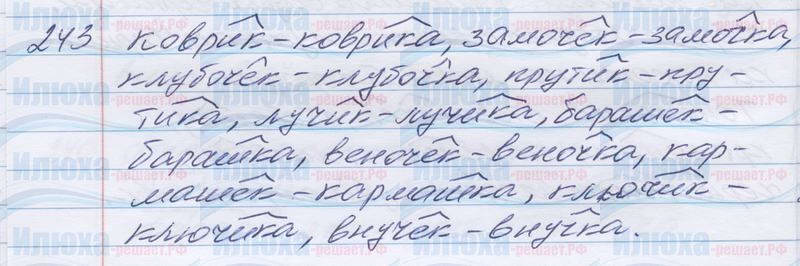 243 коврик – коврика, замочек – замочка,
клубочек – клубочка, прутик – пру-
тика, лучик – лучика, барашек –
барашка, веночек – веночка, кар-
машек – кармашка, ключик –
ключика, внучек – внучка.
Илюха-решает.РФ